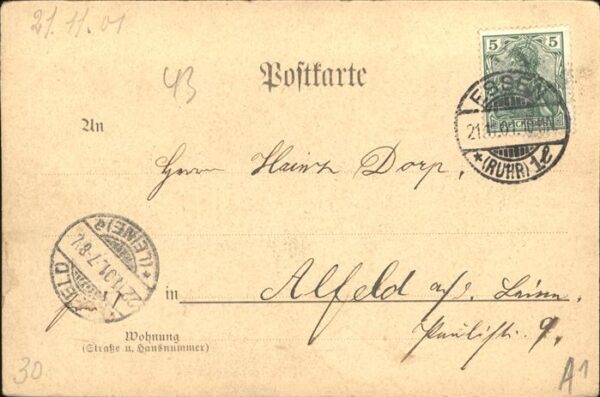 21.11.01
43
Postkarte
5 5
ESSEN
21.11.01. 10-11V
*(RUHR) 1l
An
Herrn Heinr. Dorp,
*(LEINE)a
22.11.01.7-8V.
ALFELD
in Alfeld a/d. Leine.
Paulistr. 9.
Wohnung
(Straße u. Hausnummer)
30
A1